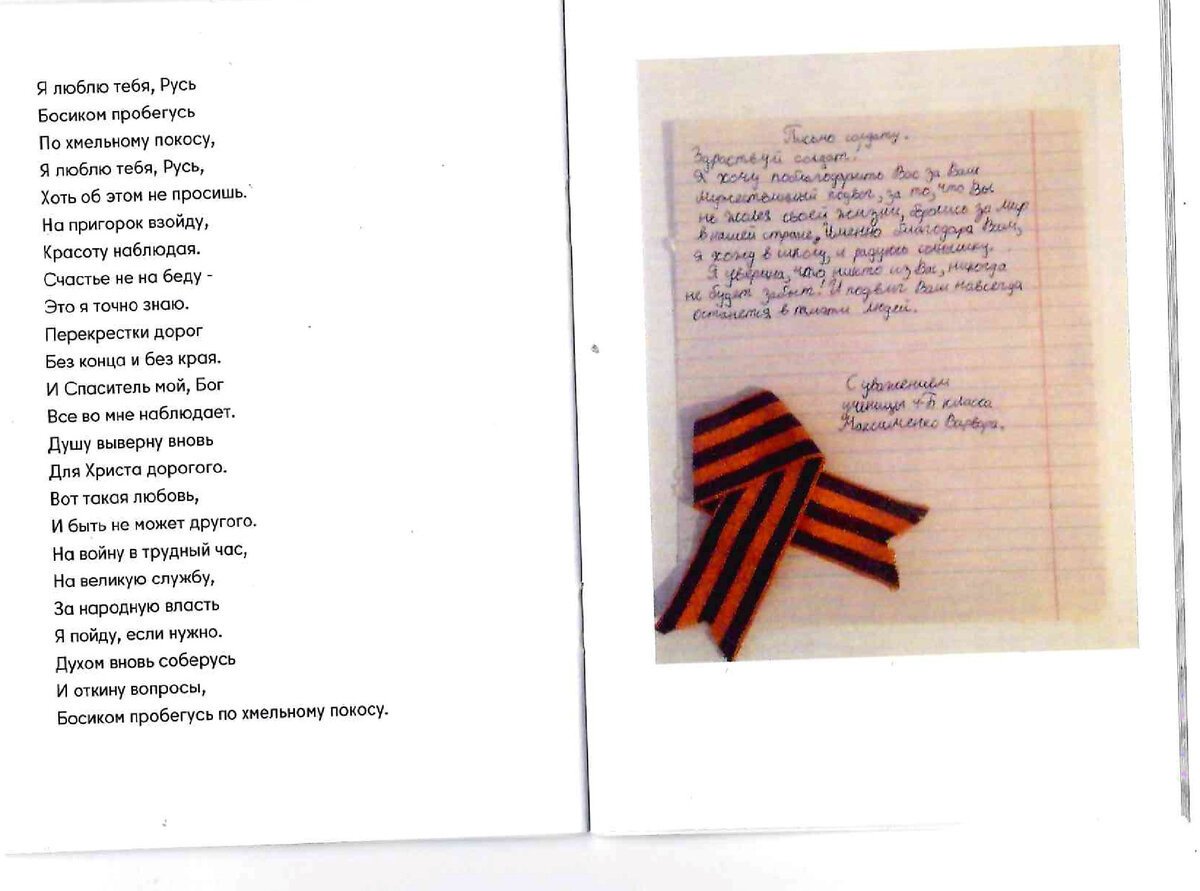 Я люблю тебя, Русь
Босиком пробегусь
По хмельному покосу,
Я люблю тебя, Русь,
Хоть об этом не просишь.
На пригорок взойду,
Красоту наблюдая.
Счастье не на беду -
Это я точно знаю.
Перекрестки дорог
Без конца и без края.
И Спаситель мой, Бог
Все во мне наблюдает.
Душу выверну вновь
Для Христа дорогого.
Вот такая любовь,
И быть не может другого.
На войну в трудный час,
На великую службу,
За народную власть
Я пойду, если нужно.
Духом вновь соберусь
И откину вопросы,
Босиком пробегусь по хмельному покосу.
Письмо солдату.
Здраствуй солдат!
Я хочу поблагодарить Вас за Ваш
Мужественный подвог, за то, что Вы
не жалея своей жизни, боролись за мир
в нашей стране. Именно благодаря Вам,
я хожу в школу, и радуюсь солнышку.
Я уверена, что никто из Вас, никогда
не будет забыт! И подвиг Ваш навсегда
останется в памяти людей.
С уважением
ученицы 4-Б класса
Максименко Варвара.